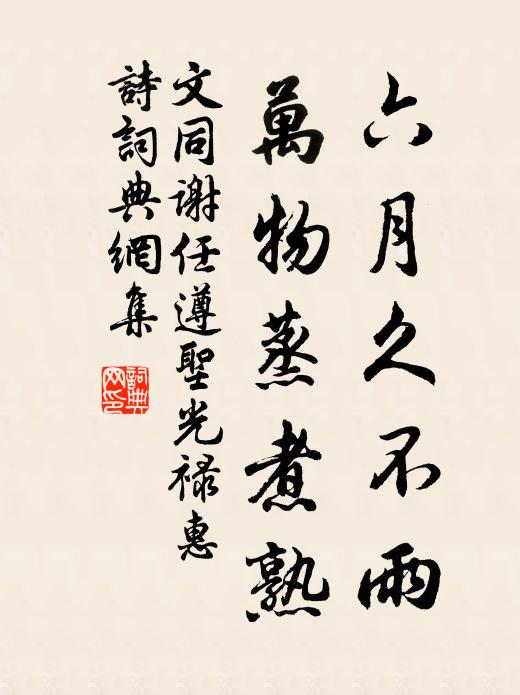 六月久不雨
萬物蒸煮熟
文同謝任遵聖光祿惠
詩詞典網集